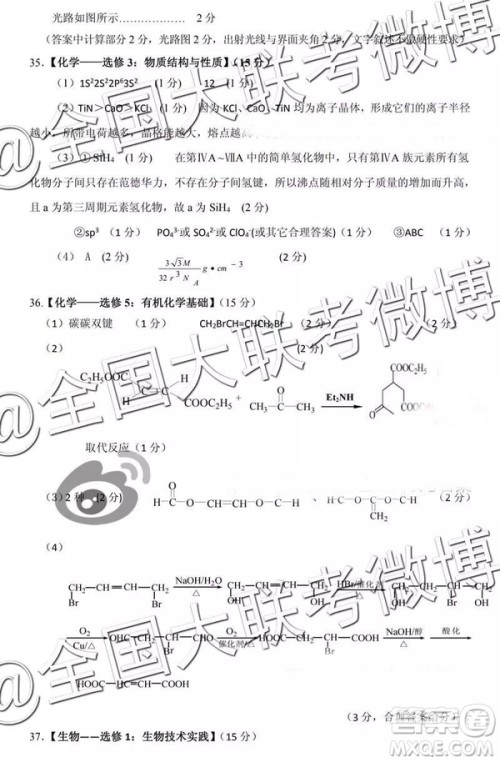 光路如图所示………………… 2 分
(答案中计算部分 2 分，光路图 2 分，出射光线与界面夹角 2 分，文字叙述不做硬性要求)
35.【化学——选修 3：物质结构与性质】(15 分)
（1）1S²2S²2P⁶3S² (1 分) 12 (1 分)
（2）TiN＞CaO＞KCl (1 分) 因为 KCl、CaO、TiN 均为离子晶体，形成它们的离子半径
越少，所带电荷越多，晶格能越大，熔点越高
（3）① SiH₄ (1 分) 在第ⅣA～ⅦA 中的简单氢化物中，只有第ⅣA 族元素所有氢
化物分子间只存在范德华力，不存在氢键，所以沸点随相对分子质量的增加而升高，
且 a 为第三周期元素氢化物，故 a 为 SiH₄ (2 分)
②sp³ (1 分) PO₄³⁻或 SO₄²⁻或 ClO₄⁻(或其它合理答案) (1 分) ③ABC (1 分)
（4） A (2 分) 3√3M / 32 r³ N_A g•cm⁻³ (2 分)
36.【化学——选修 5：有机化学基础】(15 分)
（1）碳碳双键 (1 分) CH₂BrCH=CHCH₂Br (1 分)
（2）
C₂H₅OOC COOC₂H₅ + H₃C CH₃ O Et₂NH COOC₂H₅ COOC₂H₅ O
取代反应 (1 分)
（3）2 种 (2 分) H—C—O—CH=CH—O—C—H 、 H—C—O—C—O—C—H CH₂ (2 分)
（4）
Br Br NaOH/H₂O △ OH OH HBr/催化剂 △ OH Br OH
O₂ Cu/△ OHC CHO Br O₂ 催化剂/△ HOOC COOH Br NaOH/醇 △ 酸化
HOOC COOH
(3 分，合理答案给分)
37.【生物——选修 1：生物技术实践】(15 分)
@全国大联考微博
@全国大联考微博
答案圈